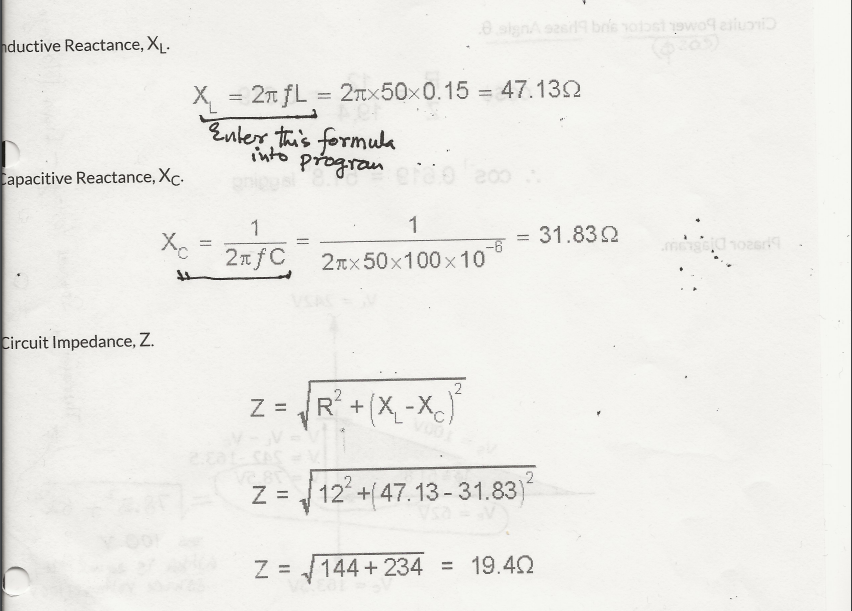 nductive Reactance, XL.
XL = 2πfL = 2π×50×0.15 = 47.13Ω
Enter this formula
into program
Capacitive Reactance, XC.
XC = 1 / 2πfC = 1 / 2π×50×100×10^-6 = 31.83Ω
Circuit Impedance, Z.
Z = √R² + (XL-XC)²
Z = √12² + (47.13 - 31.83)²
Z = √144 + 234 = 19.4Ω